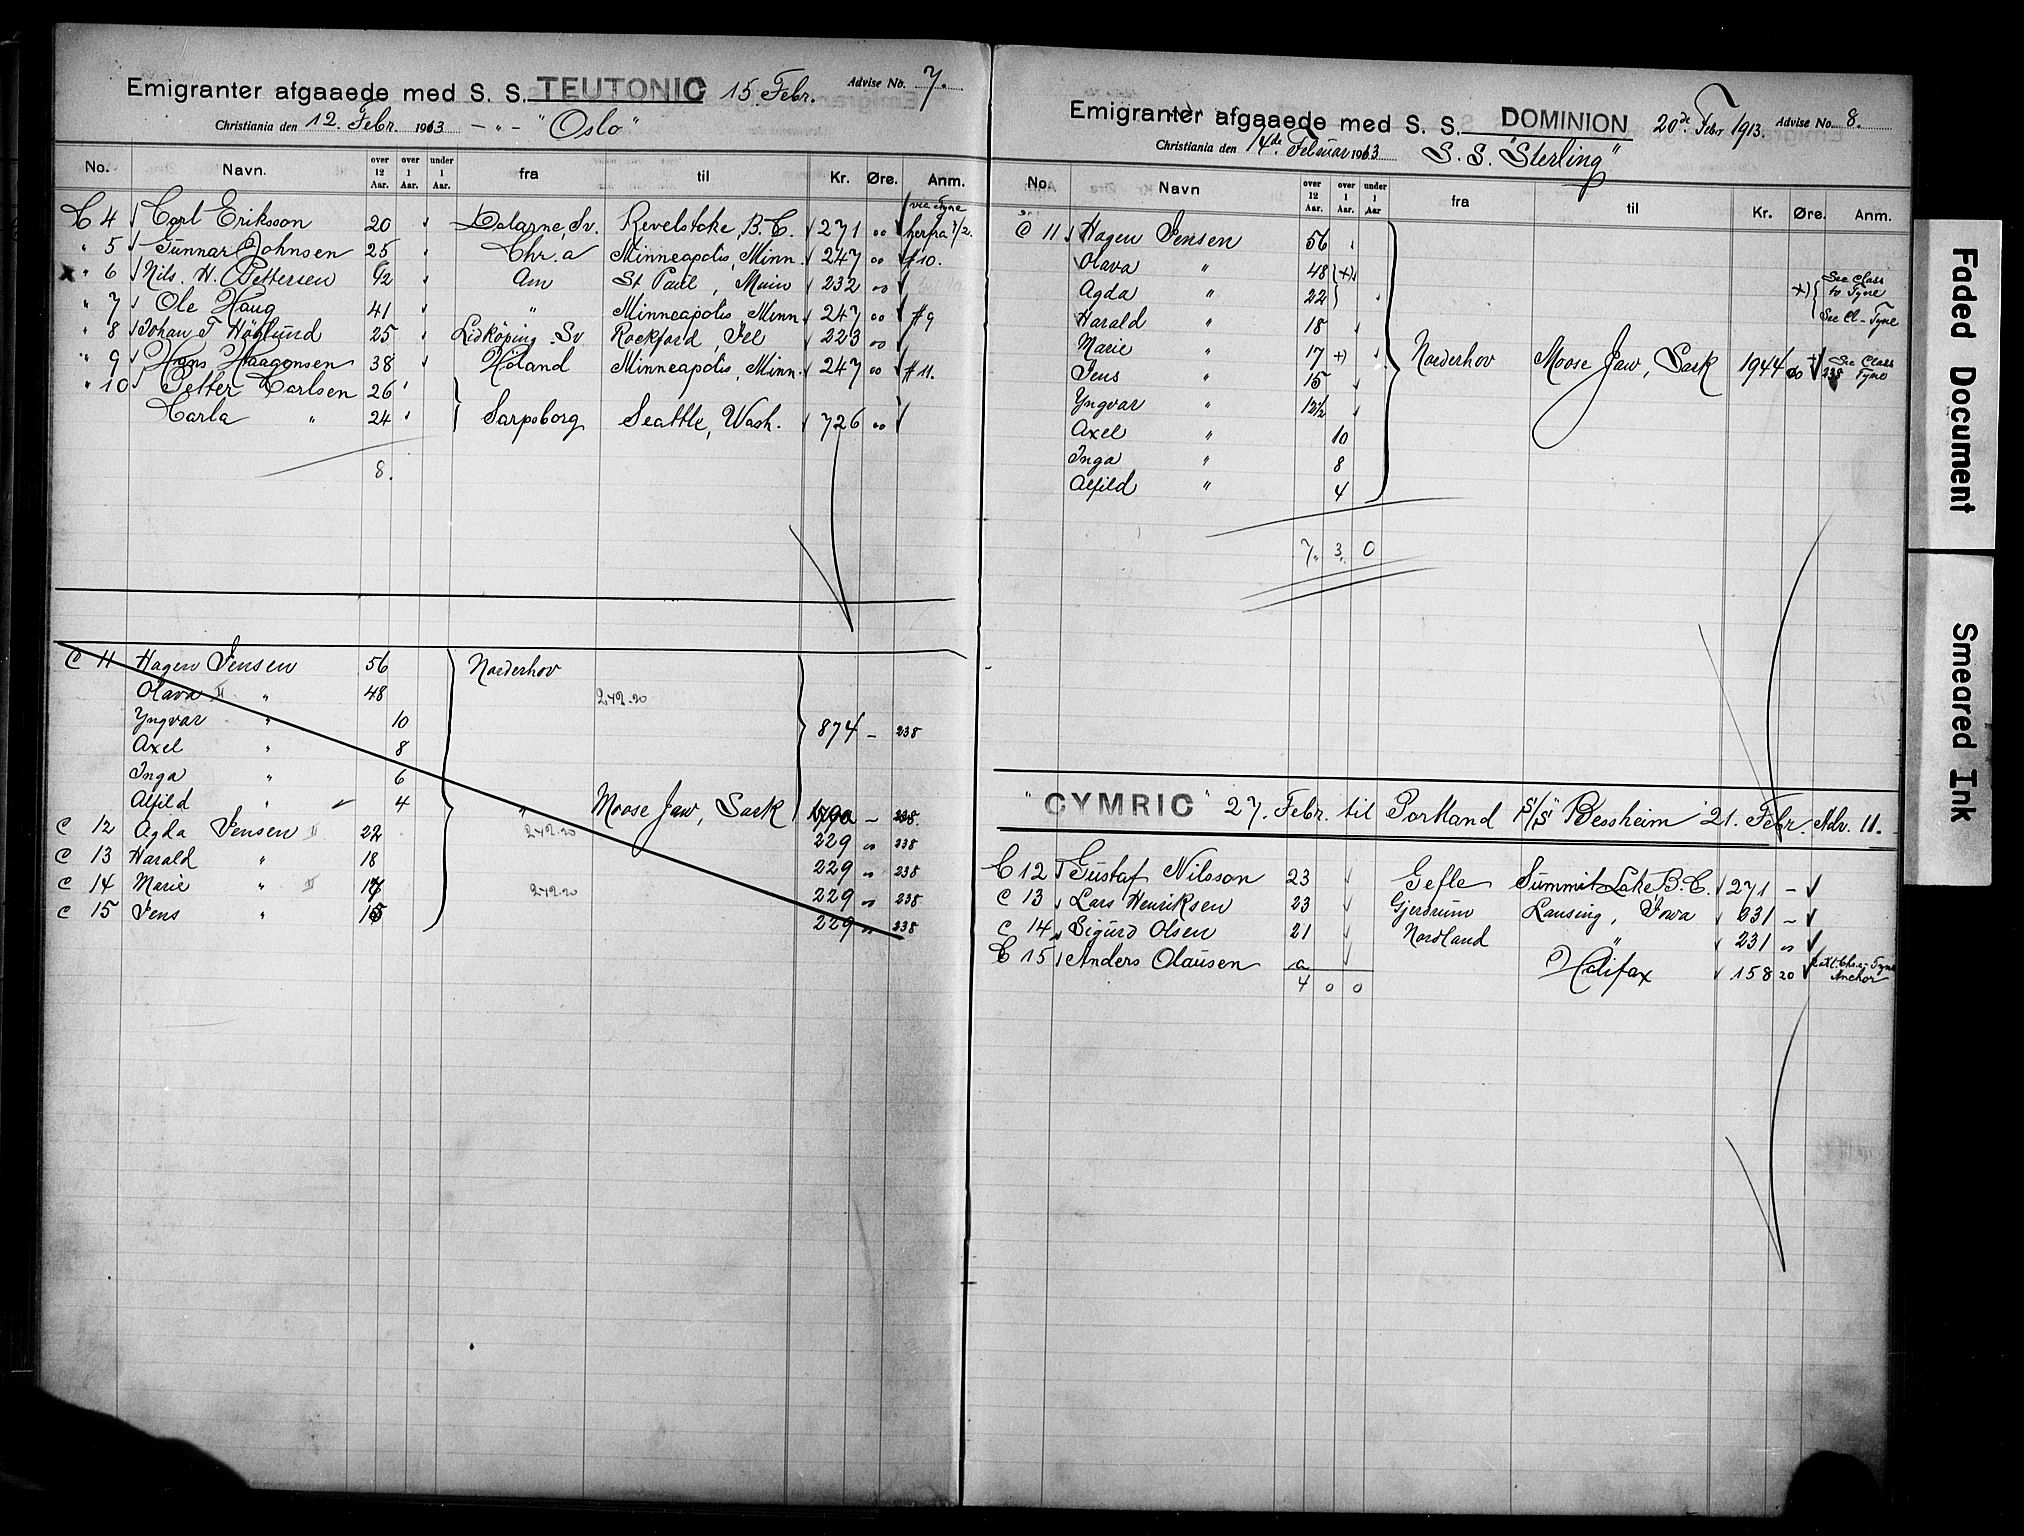 Emigranter afgaaede med S. S. TEUTONIC 15 Febr. Advise No. 7.
Christiania den 12. Febr. 1913 — „ — "Oslo"
No. Navn. over 12 Aar. over 1 Aar. under 1 Aar. fra til Kr. Øre. Anm.
via Tyne
C 4 Carl Eriksson 20 Dalarne, Sv. Revelstoke, B. C. 271 00 herfra 7/2.
" 5 Gunnar Johnsen 25 Chr.a Minneapolis, Minn. 247 00 # 10.
x " 6 Nils. H. Pettersen 42 Am St Paul, Minn 232 00
" 7 Ole Haug 41 " Minneapolis, Minn 247 00 # 9
" 8 Johan T Höglund 25 Lidköping. Sv Rockford, Ill 223 00
" 9 Hans Haagensen 38 Höland Minneapolis, Minn. 247 00 # 11.
" 10 Petter Carlsen 26
Carla " 24 Sarpsborg Seattle, Wash. 726 00
8.
C 11 Hagen Jensen 56 Norderhov
Olava " 48 242.20
Yngvar " 10 874 — 238
Axel " 8
Inga " 6
Alfild " 4 " Moose Jaw, Sask 238.
C 12 Agda Jensen 22 242.20 229 " 238
C 13 Harald " 18 229 " 238
C 14 Marie " 17 242.20 229 " 238
C 15 Jens " 15 229 " 238
Emigranter afgaaede med S. S. DOMINION 20de Febr 1913. Advise No. 8.
Christiania den 14de Februar 1913 S. S. "Sterling"
No. Navn over 12 Aar. over 1 Aar. under 1 Aar fra til Kr. Øre. Anm.
C 11 Hagen Jensen 56
Olava " 48 +) Sec Class
Agda " 22 +) to Tyne
Harald " 18 Sec Cl - Tyne
Marie " 17 +) Norderhov Moose Jaw, Sask 1944 00 + Sec Class
Jens " 15 238 Tyne
Yngvar " 12½
Axel " 10
Inga " 8
Alfild " 4
7. 3. 0
"CYMRIC" 27. Febr. til Portland S/S "Bessheim" 21. Febr. Adv. 11.
C 12 Gustaf Nilsson 23 Gefle Summit Lake B. C. 271 —
C 13 Lars Henriksen 23 Gjerdrum Lansing, Iowa 231 —
C 14 Sigurd Olsen 21 Nordland " 231 00
C 15 Anders Olausen a Halifax 158 20 Anchor
4 0 0
Faded Document
Smeared Ink